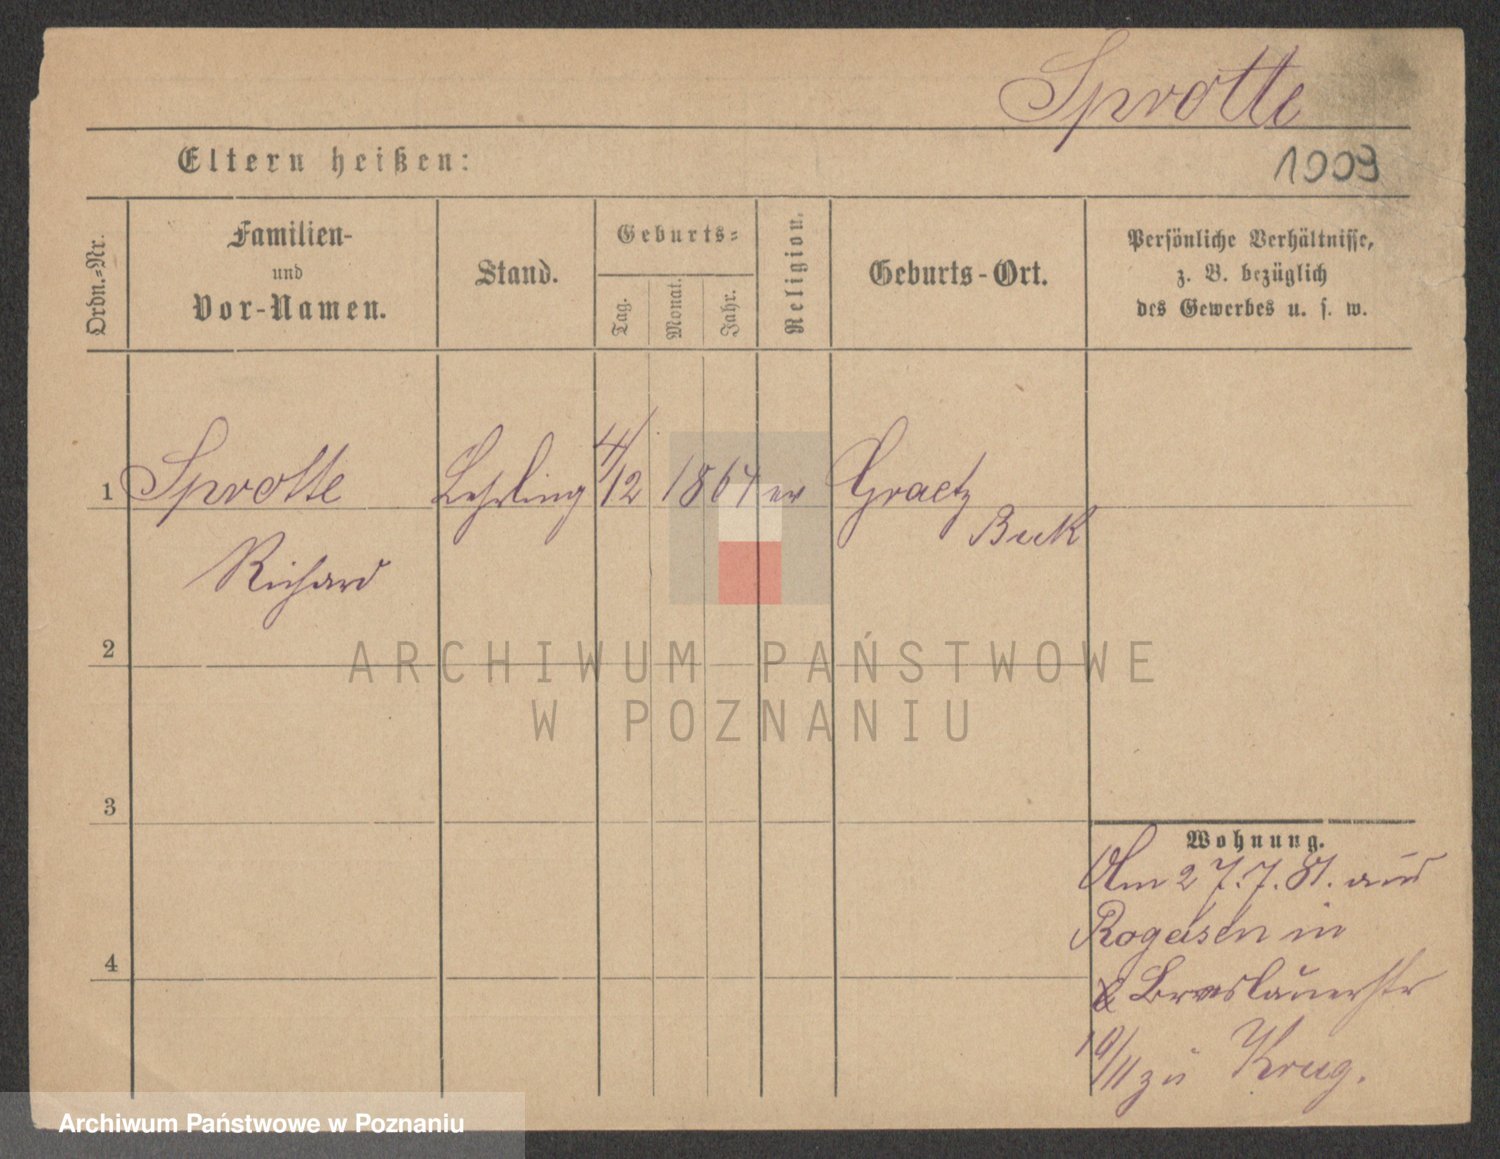 Sprotte
Eltern heißen:
1009
Ordn.-Nr.
Familien-
und
Vor-Namen.
Stand.
Geburts-
Tag.
Monat.
Jahr.
Religion.
Geburts-Ort.
Persönliche Verhältnisse,
z. B. bezüglich
des Gewerbes u. s. w.
1 Sprotte Lehrling 4/12 1864 ev Graetz
Buk
Richard
2
ARCHIWUM PAŃSTWOWE
W POZNANIU
3
Wohnung.
Am 27.7.81. aus
Rogasen in
Breslauerstr
10/11 zu Krug.
4
Archiwum Państwowe w Poznaniu